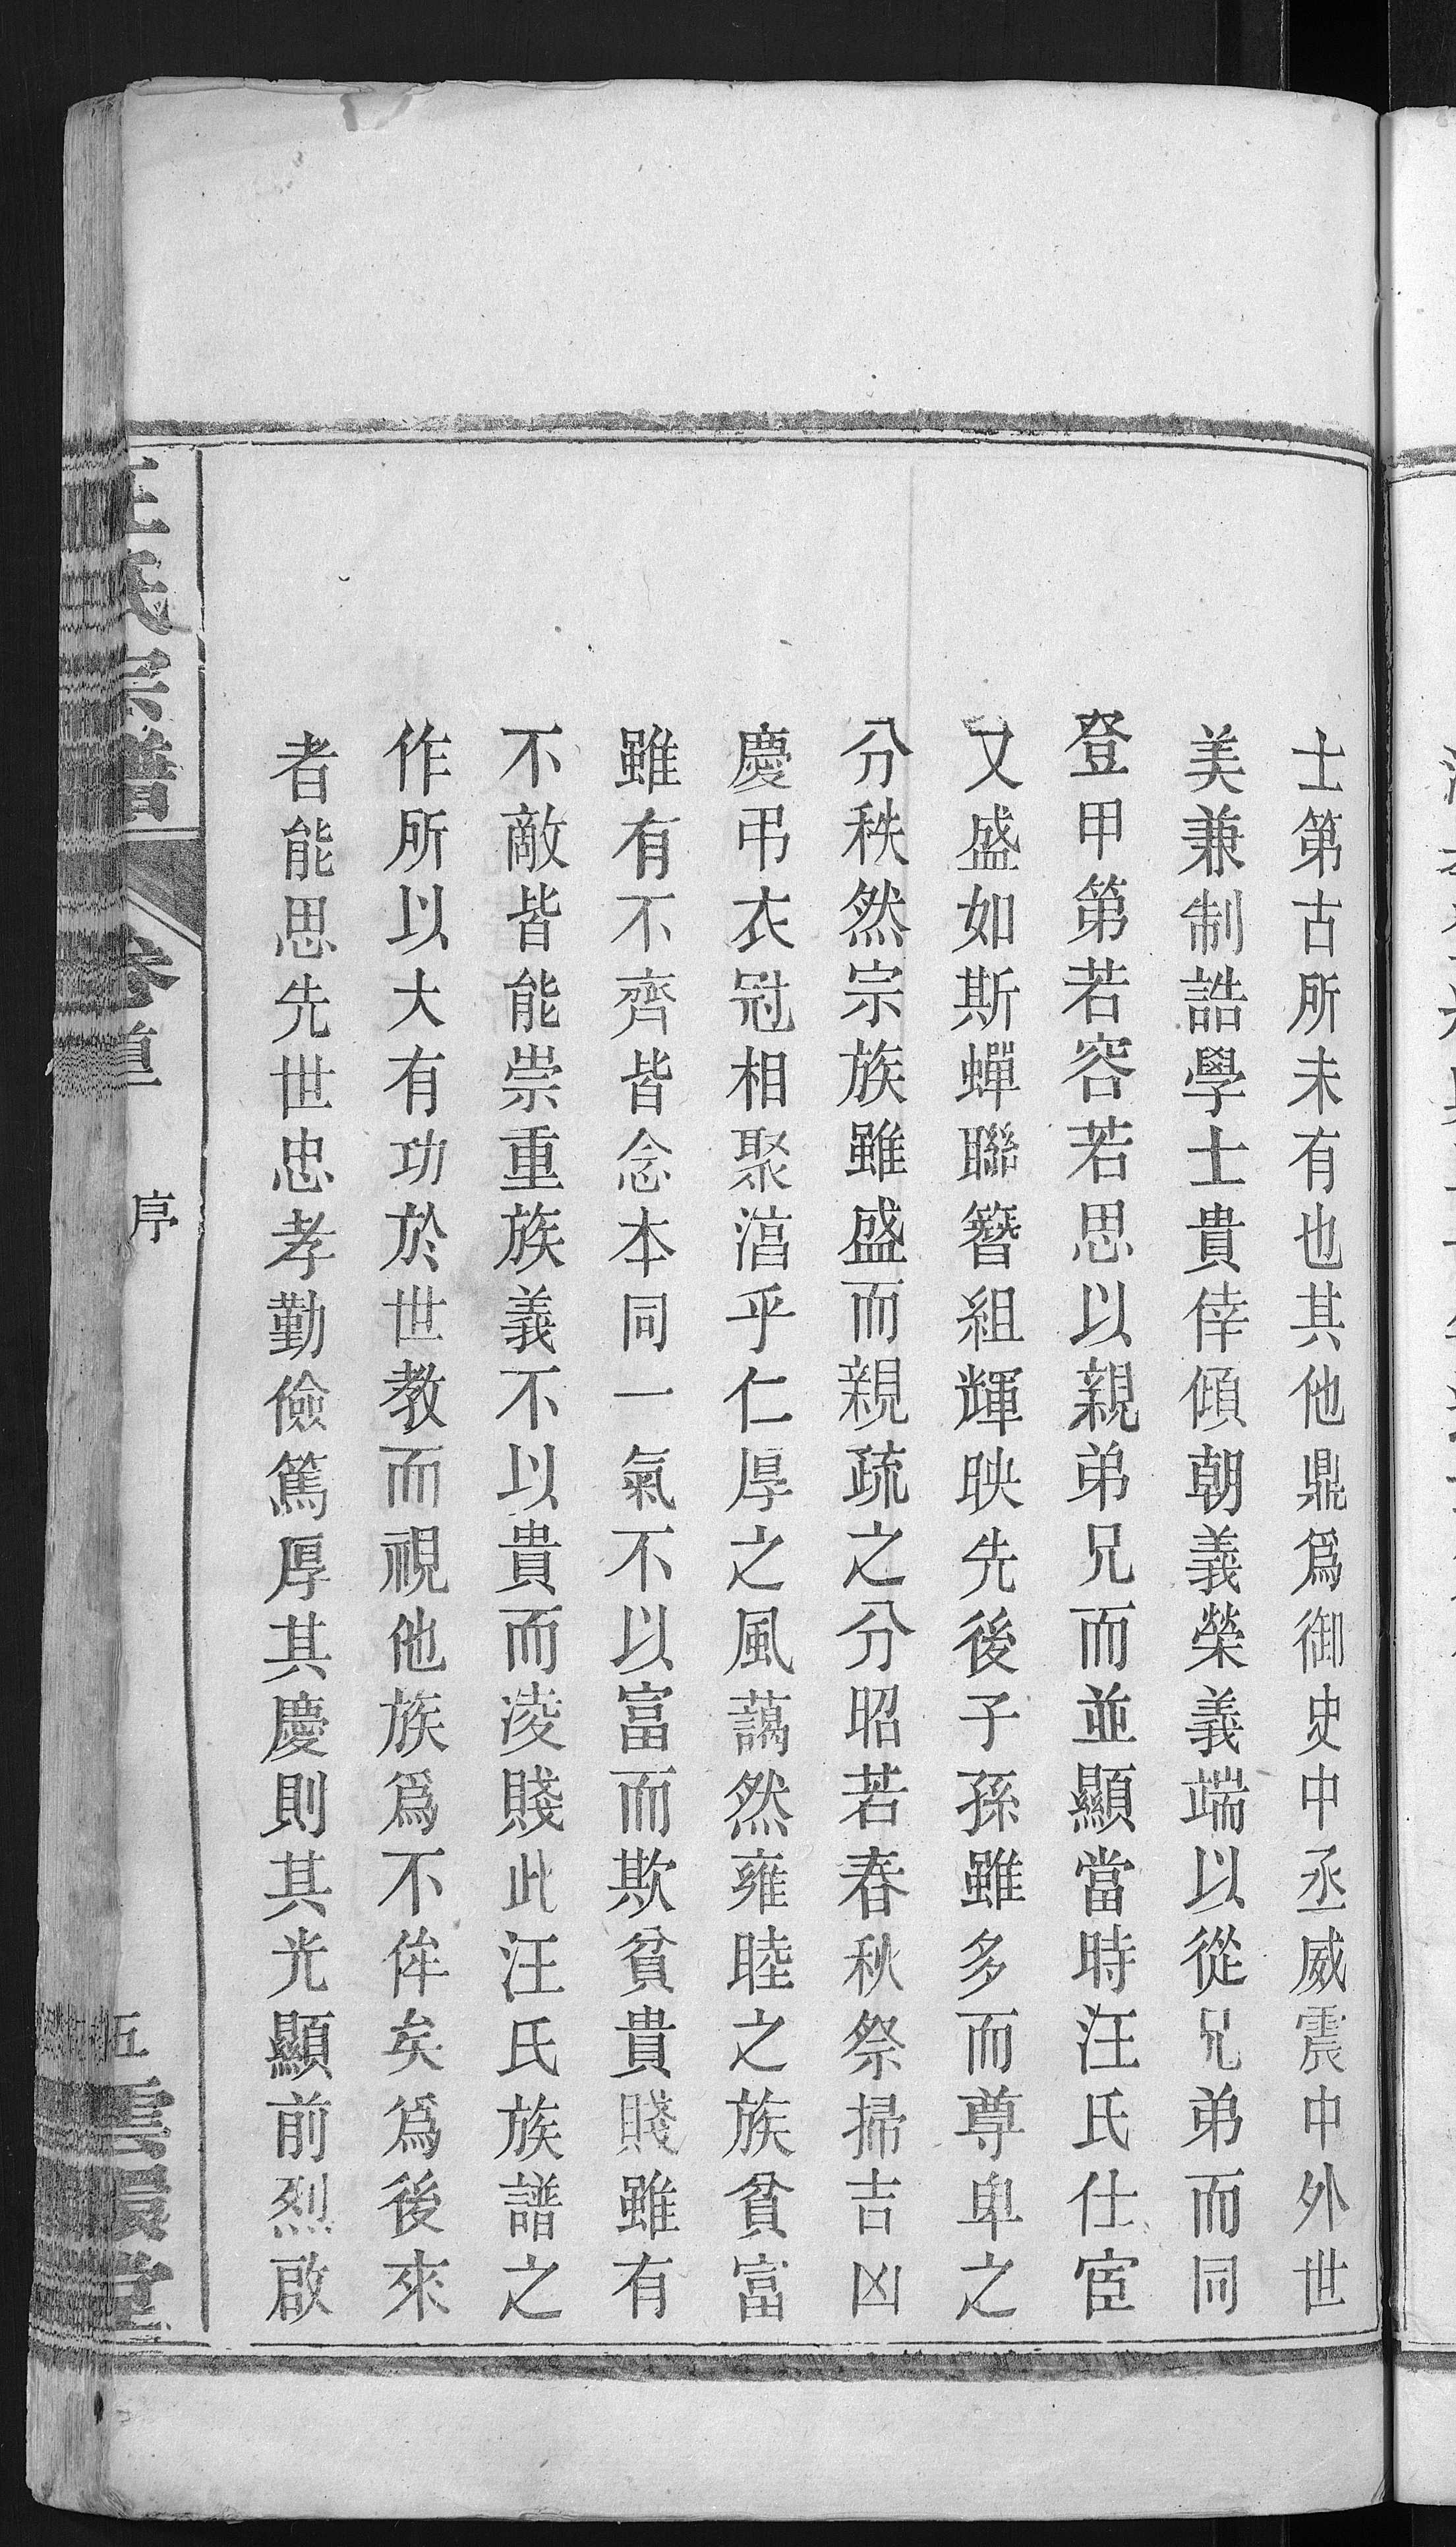 士第古所未有也其他鼎爲御史中丞威震中外世
美兼制誥學士貴倖傾朝義榮義端以從兄弟而同
登甲第若容若思以親弟兄而並顯當時汪氏仕宦
又盛如斯蟬聯簪組輝映先後子孫雖多而尊卑之
分秩然宗族雖盛而親疏之分昭若春秋祭掃吉凶
慶弔衣冠相聚藹乎仁厚之風藹然雍睦之族貧富
雖有不齊皆念本同一氣不以富而欺貧貴賤雖有
不敵皆能崇重族義不以貴而凌賤此汪氏族譜之
作所以大有功於世教而視他族爲不侔矣爲後來
者能思先世忠孝勤儉篤厚其慶則其光顯前烈啟
汪氏宗譜 卷首 序 五 雲環堂